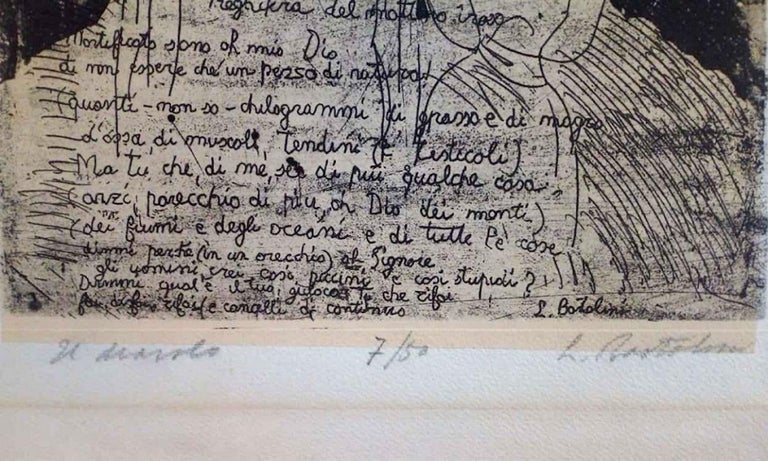 Preghiera del mattino
Mortificato sono oh mio Dio
di non essere che un pezzo di natura!
quanti - non so - chilogrammi di grasso e di magro
d'ossa, di muscoli, tendini e testicoli)
Ma tu, che, di me, sei di più qualche cosa
anzi, parecchio di più, oh Dio dei monti)
(dei fiumi e degli oceani e di tutte le cose
dimmi perchè (in un orecchio) oh Signore
gli uomini crei così piccini e così stupidi?
Dimmi qual'è il tuo che rifai
fai, disfai, rifai e cancelli di continuo
L. Bartolini
Il diavolo 7/50 L. Bartolini